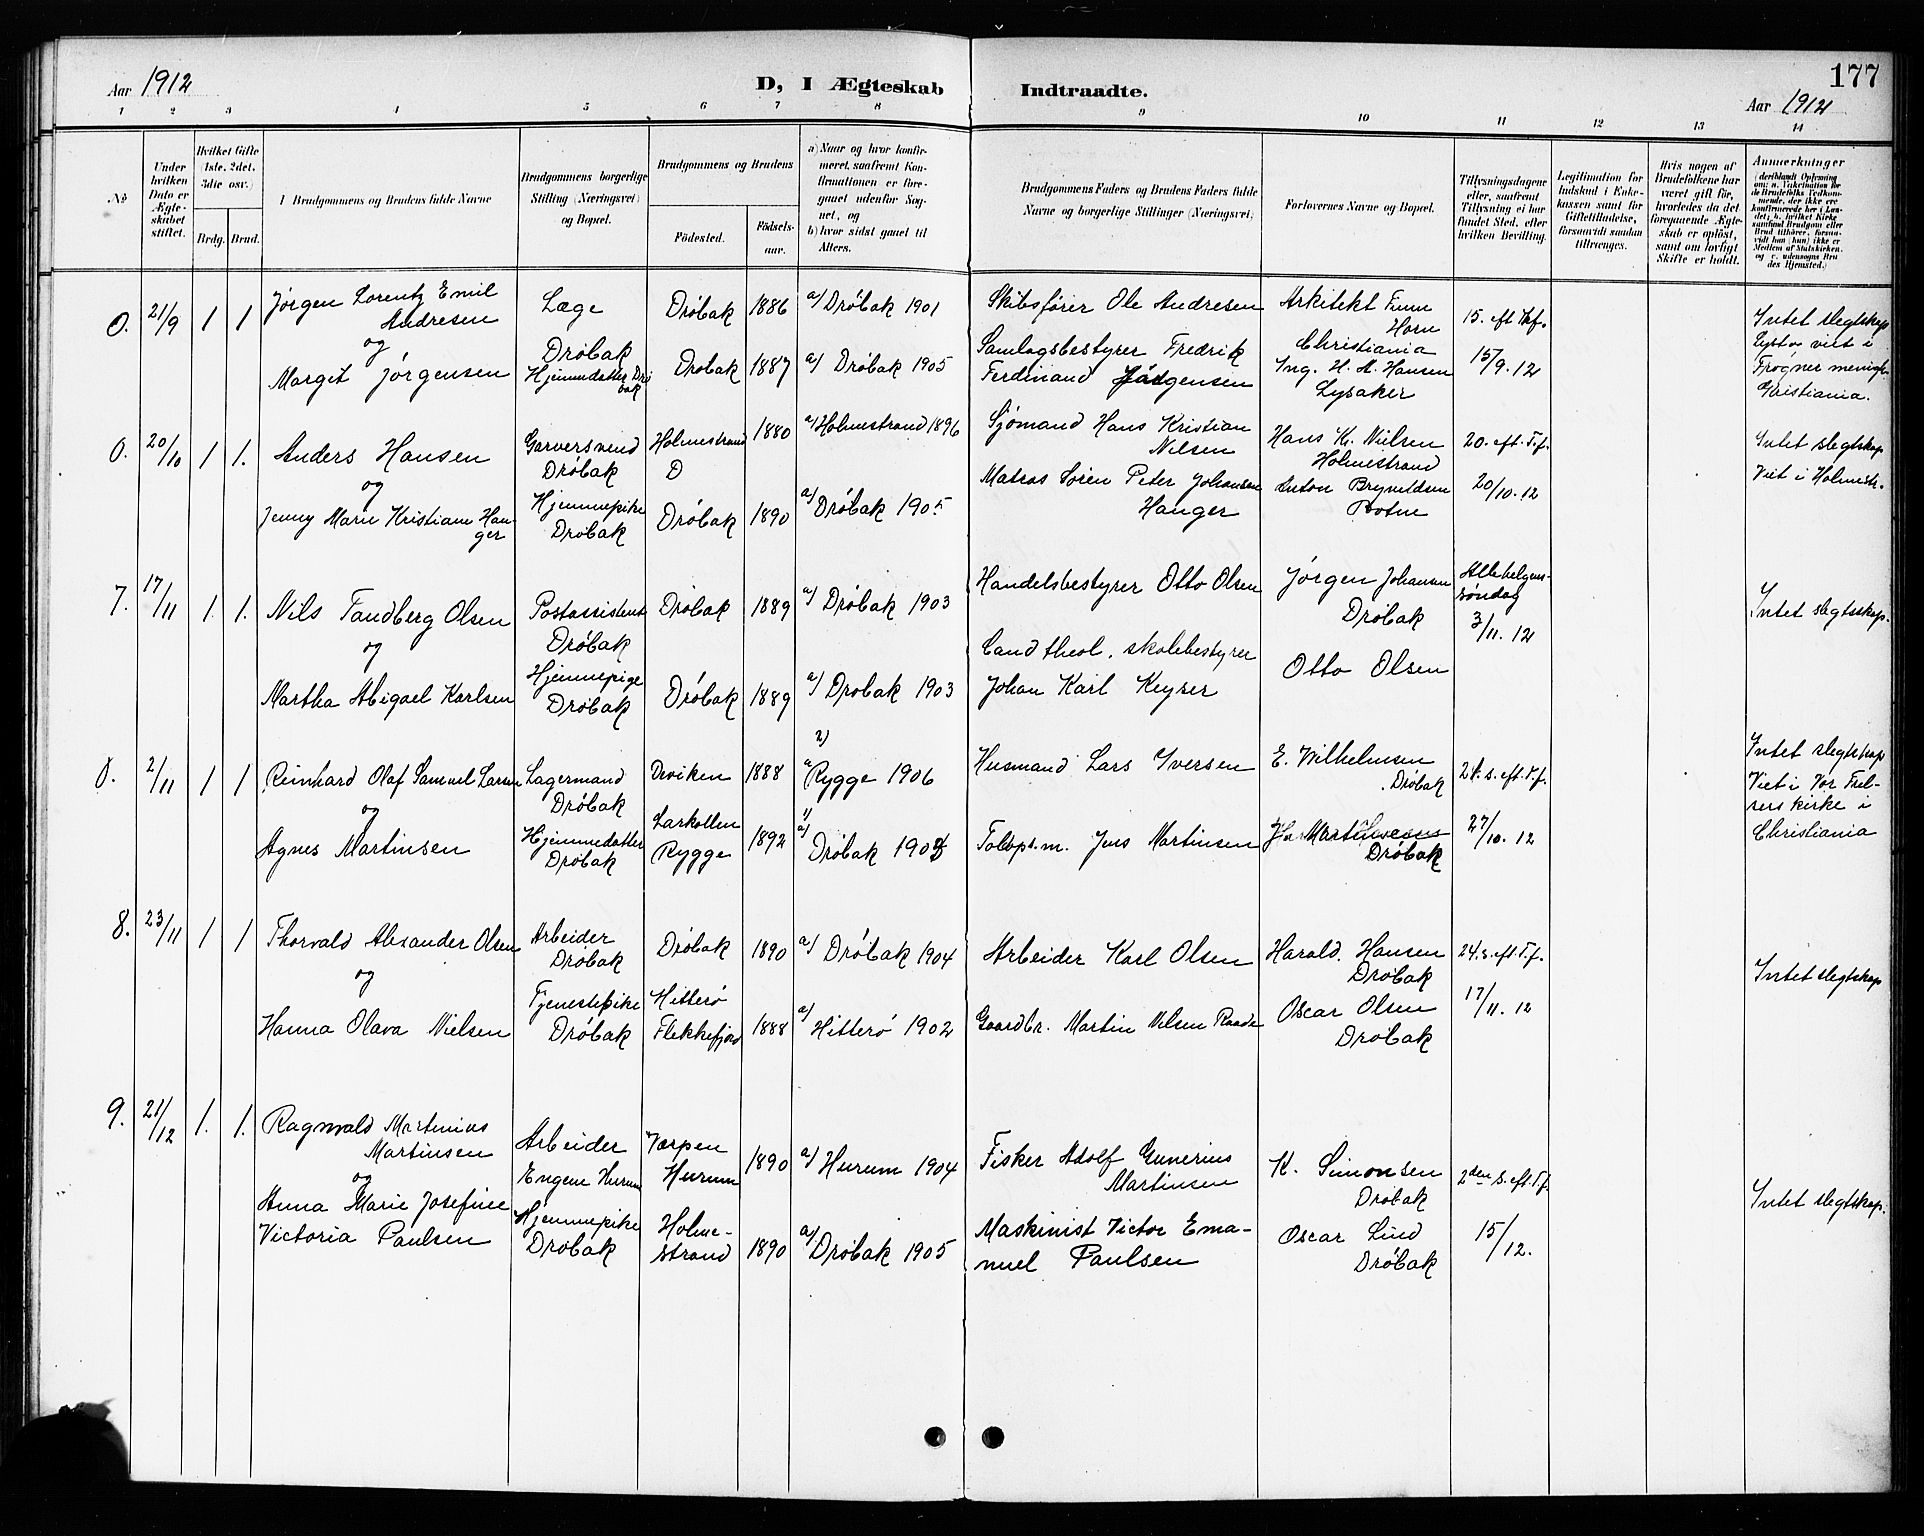 Aar 1912
D, I Ægteskab Indtraadte.
177
Aar 1912
1 2 3 4 5 6 7 8 9 10 11 12 13 14
No
Under hvilken Dato er Ægteskabet stiftet.
Hvilket Gifte (1ste, 2det, 3die osv.)
Brdg. Brud.
I Brudgommens og Brudens fulde Navne
Brudgommens borgerlige Stilling (Næringsvei) og Bopæl.
Brudgommens og Brudens
Födested.
Födselsaar.
a) Naar og hvor konfirmeret, saafremt Konfirmationen er foregaaet udenfor Sognet, og
b) hvor sidst gaaet til Alters.
Brudgommens Faders og Brudens Faders fulde Navne og borgerlige Stillinger (Næringsvei)
Forlovernes Navne og Bopæl.
Tillysningsdagene eller, saafremt Tillysning ei har fundet Sted, efter hvilken Bevilling.
Legitimation for Indskud i Enkekassen samt for Giftetilladelse, forsaavidt saadan tiltrænges.
Hvis nogen af Brudefolkene har været gift för, hvorledes da det foregaaende Ægteskab er oplöst, samt om lovligt Skifte er holdt.
Anmerkninger
0. 21/9 1 1 Jørgen Lorentz Emil Andresen
Læge Drøbak
Drøbak 1886 a) Drøbak 1901
Skibsfører Ole Andresen
Arkitekt Finne Horn Christiania
15. eft Tref.
15/9. 12
Intet slegtskap
viet i Frogner menigh. Christiania.
og
Margit Jørgensen
Hjemmedatter Drøbak
Drøbak 1887 a) Drøbak 1905
Samlagsbestyrer Fredrik Ferdinand Jørgensen
Ing. H. A. Hansen Lysaker
0. 20/10 1 1. Anders Hansen
Garversvend Drøbak
Holmestrand D 1880 a) Holmestrand 1896
Sjømand Hans Kristian Nilsen
Hans Kr. Nielsen Holmestrand
20. eft. T.f.
20/10. 12
Intet slegtskap
Viet i Holmestr.
og
Jenny Marie Kristiane Hanger
Hjemmepike Drøbak
Drøbak 1890 a) Drøbak 1905
Matros Søren Peter Johansen Hanger
Anton Bryneldsen Botne
7. 17/11 1. 1. Nils Tandberg Olsen
Postassistent Drøbak
Drøbak 1889 a) Drøbak 1903
Handelsbestyrer Otto Olsen
Jørgen Johansen Drøbak
Allehelgenssøndag
3/11. 12
Intet slegtskap.
og
Martha Abigael Karlsen
Hjemmepige Drøbak
Drøbak 1889 a) Drøbak 1903
Cand theol. skolebestyrer Johan Karl Keyser
Otto Olsen
0. 2/11 1 1 Reinhard Olaf Samuel Larsen
Lagermand Drøbak
Deviken 1888 2) a) Rygge 1906
Husmand Lars Iversen
E. Wilhelmsen Drøbak
21. s. eft. T.f.
27/10. 12
Intet slegtskap
Viet i Vor Frelsers kirke i Christiania
og
Agnes Martinsen
Hjemmedatter Drøbak
Larkollen Rygge 1892 1) a) Drøbak
Toldops.m. Jens Martinsen
Drøbak
8. 23/11 1 1 Thorvald Alexander Olsen
Arbeider Drøbak
Drøbak 1890 a) Drøbak 1904
Arbeider Karl Olsen
Harald. Hansen Drøbak
24. s. eft. T.f.
17/11. 12
Intet slegtskap
og
Hanna Olava Nielsen
Tjenestepike Drøbak
Hitterø Flekkefjord 1888 a) Hitterø 1902
Gaardbr. Martin Nilsen Raade
Oscar Olsen Drøbak
9. 21/12 1. 1. Ragnvald Martinius Martinsen
Arbeider Engene Hurum
Værpen Hurum 1890 a) Hurum 1904
Fisker Adolf Gunerius Martinsen
K. Simonsen Drøbak
2den s. eft. T.f.
15/12.
Intet slegtskap.
og
Anna Marie Josefine Victoria Paulsen
Hjemmepike Drøbak
Holmestrand 1890 a) Drøbak 1905
Maskinist Victor Emanuel Paulsen
Oscar Lind Drøbak